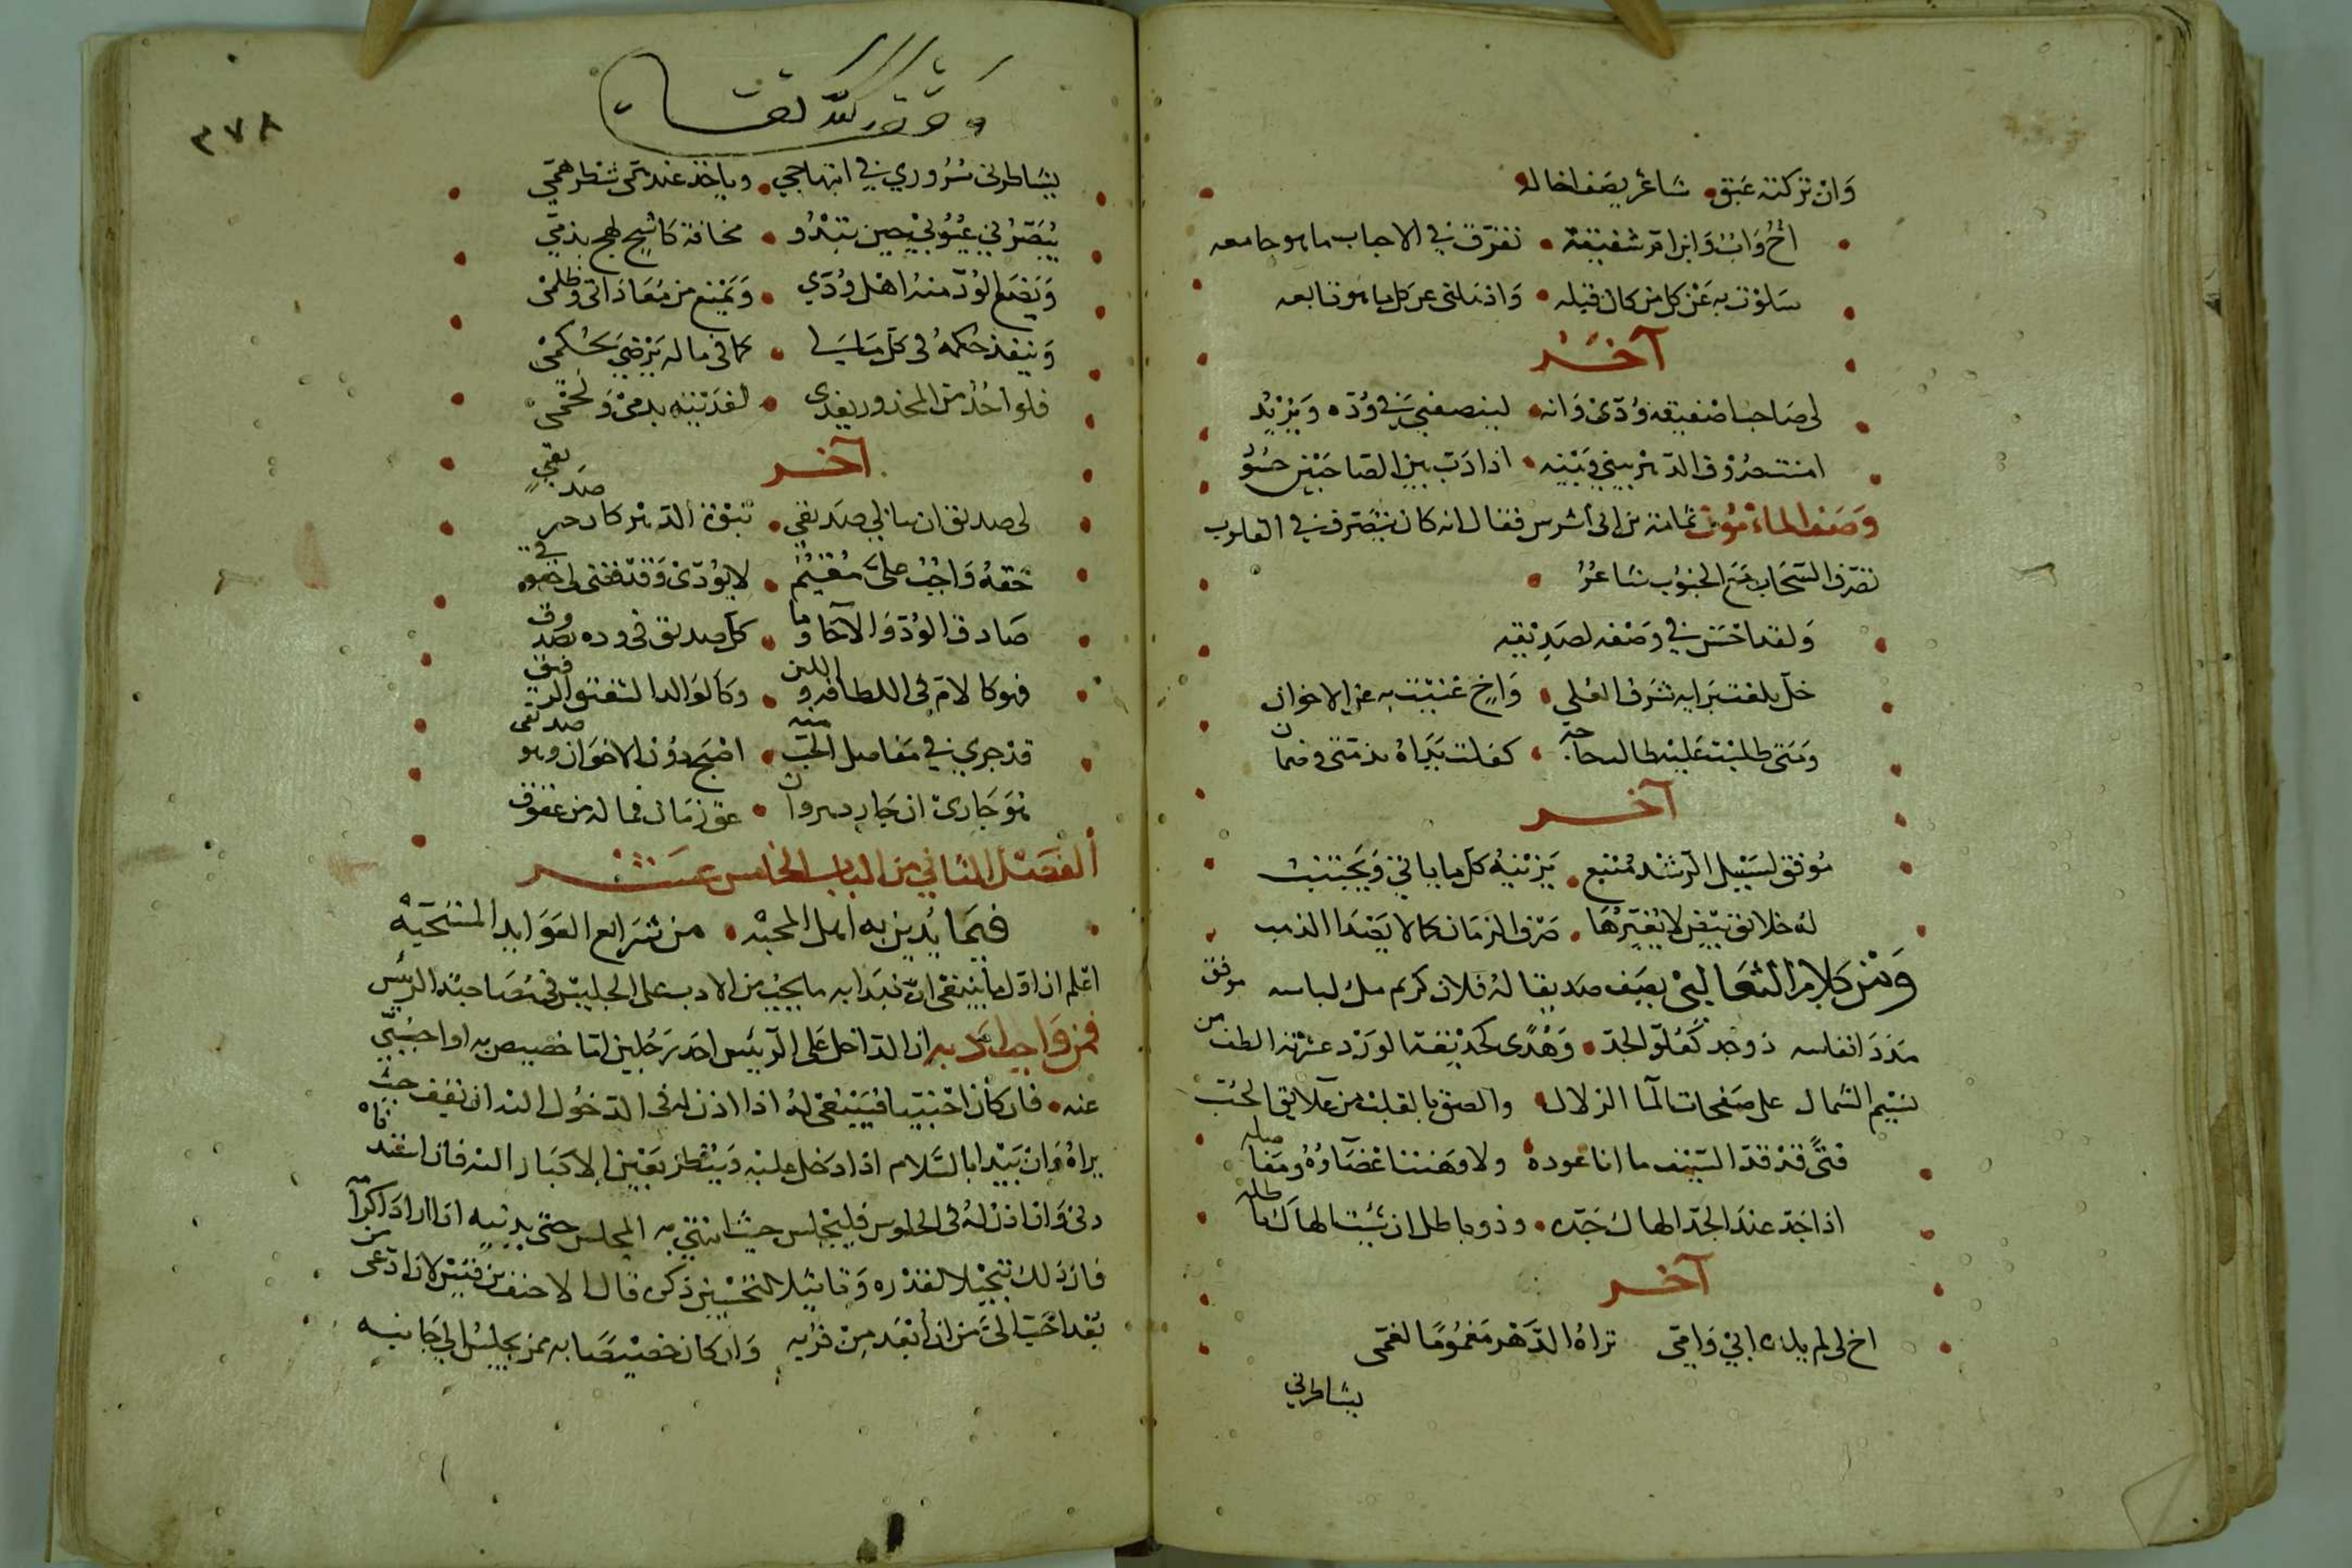 وان تركته عبق • شاعر يصف اخا له
اخ واب وابن وام شفيقة • تفرق في الاحباب ما هو جامعه
سلوت به عن كل من كان قبله • واذهلني عن كل ما هو تابعه
آخر
لي صاحب اصفيه ودى وانه • لينصفني في وده ويزيد
امنت صروف الدهر بيني وبينه • اذا دب بين الصاحبين حسود
وصف المامون ثمامة بن اشرس فقال انه كان يتصرف في القلوب
تصرف السحاب مع الجنوب شاعر •
ولقد احسن في وصفه لصديقه
خل بلغت برايه شرف العلى • واخ غنيت به عن الاخوان
ومتى طلبت عليه طالب حاجة • كفلت يداه بذمتى وضمان
آخر
موفق لسبيل الرشد متبع • يزينه كل ما ياتي ويجتنب
له خلائق بيض لا يغيرها • صرف الزمان كما لا يصدا الذهب
ومن كلام الثعالبي يصف صديقا له فلان كريم ملء لباسه موفق
مدد انفاسه ذو جد كعلو الجد • وهدى كحديقة الورد عشرته الطف من
نسيم الشمال على صفحات الما الزلال • والصق بالقلب من علائق الحب
فتى قد قد السيف ما انا عوده • ولا وهنت اعضاوه ومفاصله
اذا جد عند الجد الهاك جده • وذو باطل ان شيت الهاك باطله
آخر
اخ لي لم يلده ابي وامي تراه الدهر مغموما لغمى
يشاطرني
٣٧٨
يشاطرني سروري في ابتهاجي • وياخذ عند همى شطر همي
يبصرني عيوبي حين تبدو • مخافة كاشح لهج بذمي
ويصفي الود منه اهل ودي • ويمنع من معاداتى وظلمى
وينفذ حكمه فى كل مالي • كما فى ماله يرضى بحكمى
فلو احد من المحذور يفدى • لفديته بدمى ولحمى
آخر
لى صديق ان نابني صديقي
حقه واجب على مقيم • لا يودى وقد قضى لي حقوقى
صادق الود والاخا وما • كل صديق فى وده بصدوق
فهو كالام فى اللطافة واللين • وكالوالد الشفيق الرفيق
قد جرى في مفاصل الحب منه • اصبح دون الاخوان وهو صديقى
هو جارى ان جار دهر وان • عق زمان فماله من عقوق
الفصل الثاني من الباب الخامس عشر
فيما يدين به اهل المحبه • من شرايع العوايد المستحبه
اعلم ان اول ما ينبغى ان نبدا به ما يجب من الادب على الجليس فى مصاحبة الرييس
فمن واجب ادبه ان الداخل على الرييس احد رجلين اما خصيص به او اجنبي
عنه • فان كان اجنبيا فينبغى له اذا اذن له فى الدخول اليه ان يقف حيث
يراه وان يبدا بالسلام اذا دخل عليه وينظر بعين الاكبار اليه فان استدناه
دنى وان اذن له فى الجلوس فليجلس حيث انتهى به المجلس حتى يدنيه اذا اراد اكراما
فان ذلك تبجيلا لقدره وتاثيلا لتحسين ذكره قال الاحنف بن قيس لان ادعى من
بعد احب الى من ان ابعد من قربه وان كان خصيصا به ممن يجلس الى جانبه